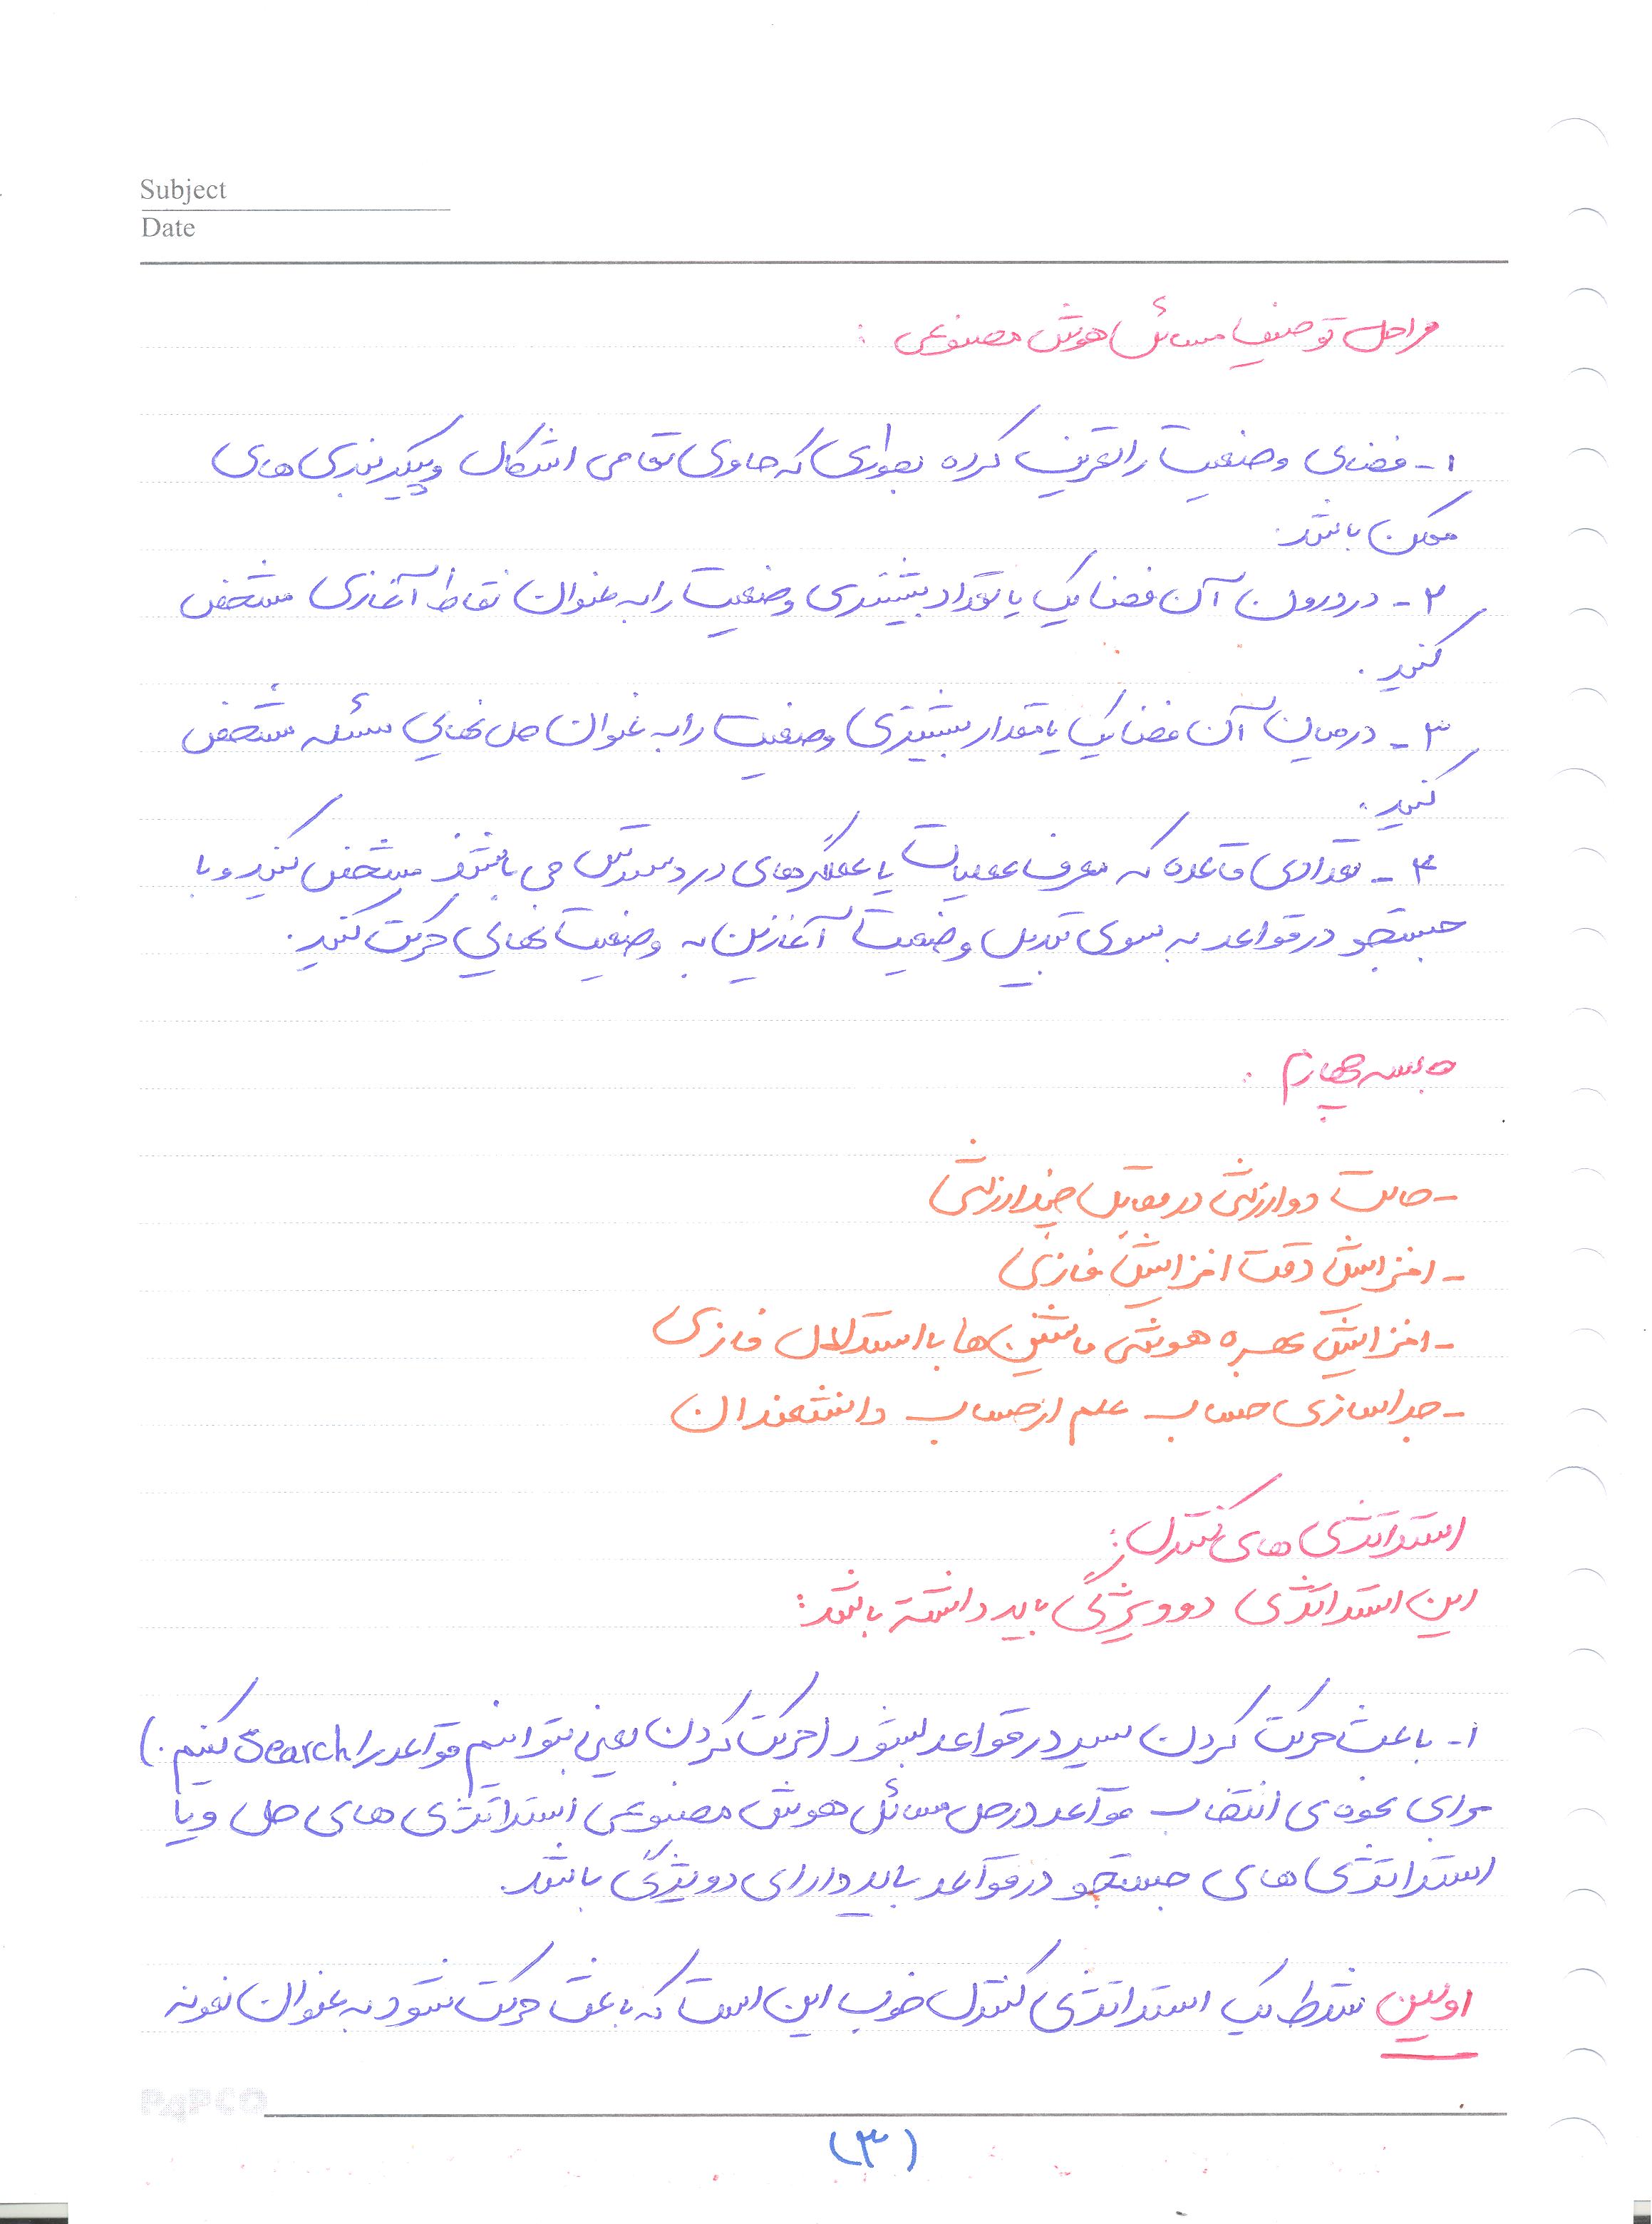 Subject
Date
مراحل توصیف مسائل هوش مصنوعی :
۱- فضای وضعیت را تعریف کرده بطوری که حاوی تمامی اشکال و پیکربندی های
ممکن باشد.
۲- در درون آن فضا یک یا تعداد بیشتری وضعیت را به عنوان نقاط آغازی مشخص
کنید .
۳- در میان آن فضا یک یا مقدار بیشتری وضعیت را به عنوان حل نهایی مسئله مشخص
کنید .
۴- تعدادی قاعده که معرف عملیات یا عملگرهای در دسترس می باشند مشخص کنید و با
جستجو در قواعد به سوی تبدیل وضعیت آغازین به وضعیت نهایی حرکت کنید .
جلسه چهارم :
- حالت دو ارزشی در مقابل چند ارزشی
- افزایش دقت افزایش فازی
- افزایش بهره هوشی ماشین ها با استدلال فازی
- جداسازی حساب علم از حساب دانشمندان
استراتژی های کنترل :
این استراتژی دو ویژگی باید داشته باشد :
۱- باعث حرکت کردن مسیر در قواعد بشود (حرکت کردن یعنی بتوانیم قواعد را Search کنیم .)
برای نحوه ی انتخاب قواعد در حل مسائل هوش مصنوعی استراتژی های حل و یا
استراتژی های جستجو در قواعد باید دارای دو ویژگی باشد.
اولین شرط یک استراتژی کنترل خوب این است که باعث حرکت شود به عنوان نمونه
PAPCO
(۳)